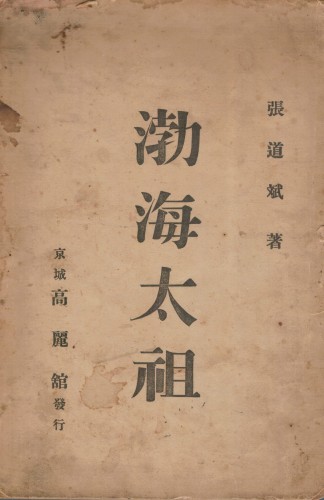 張道斌著
渤海太祖
京城 高麗舘 發行